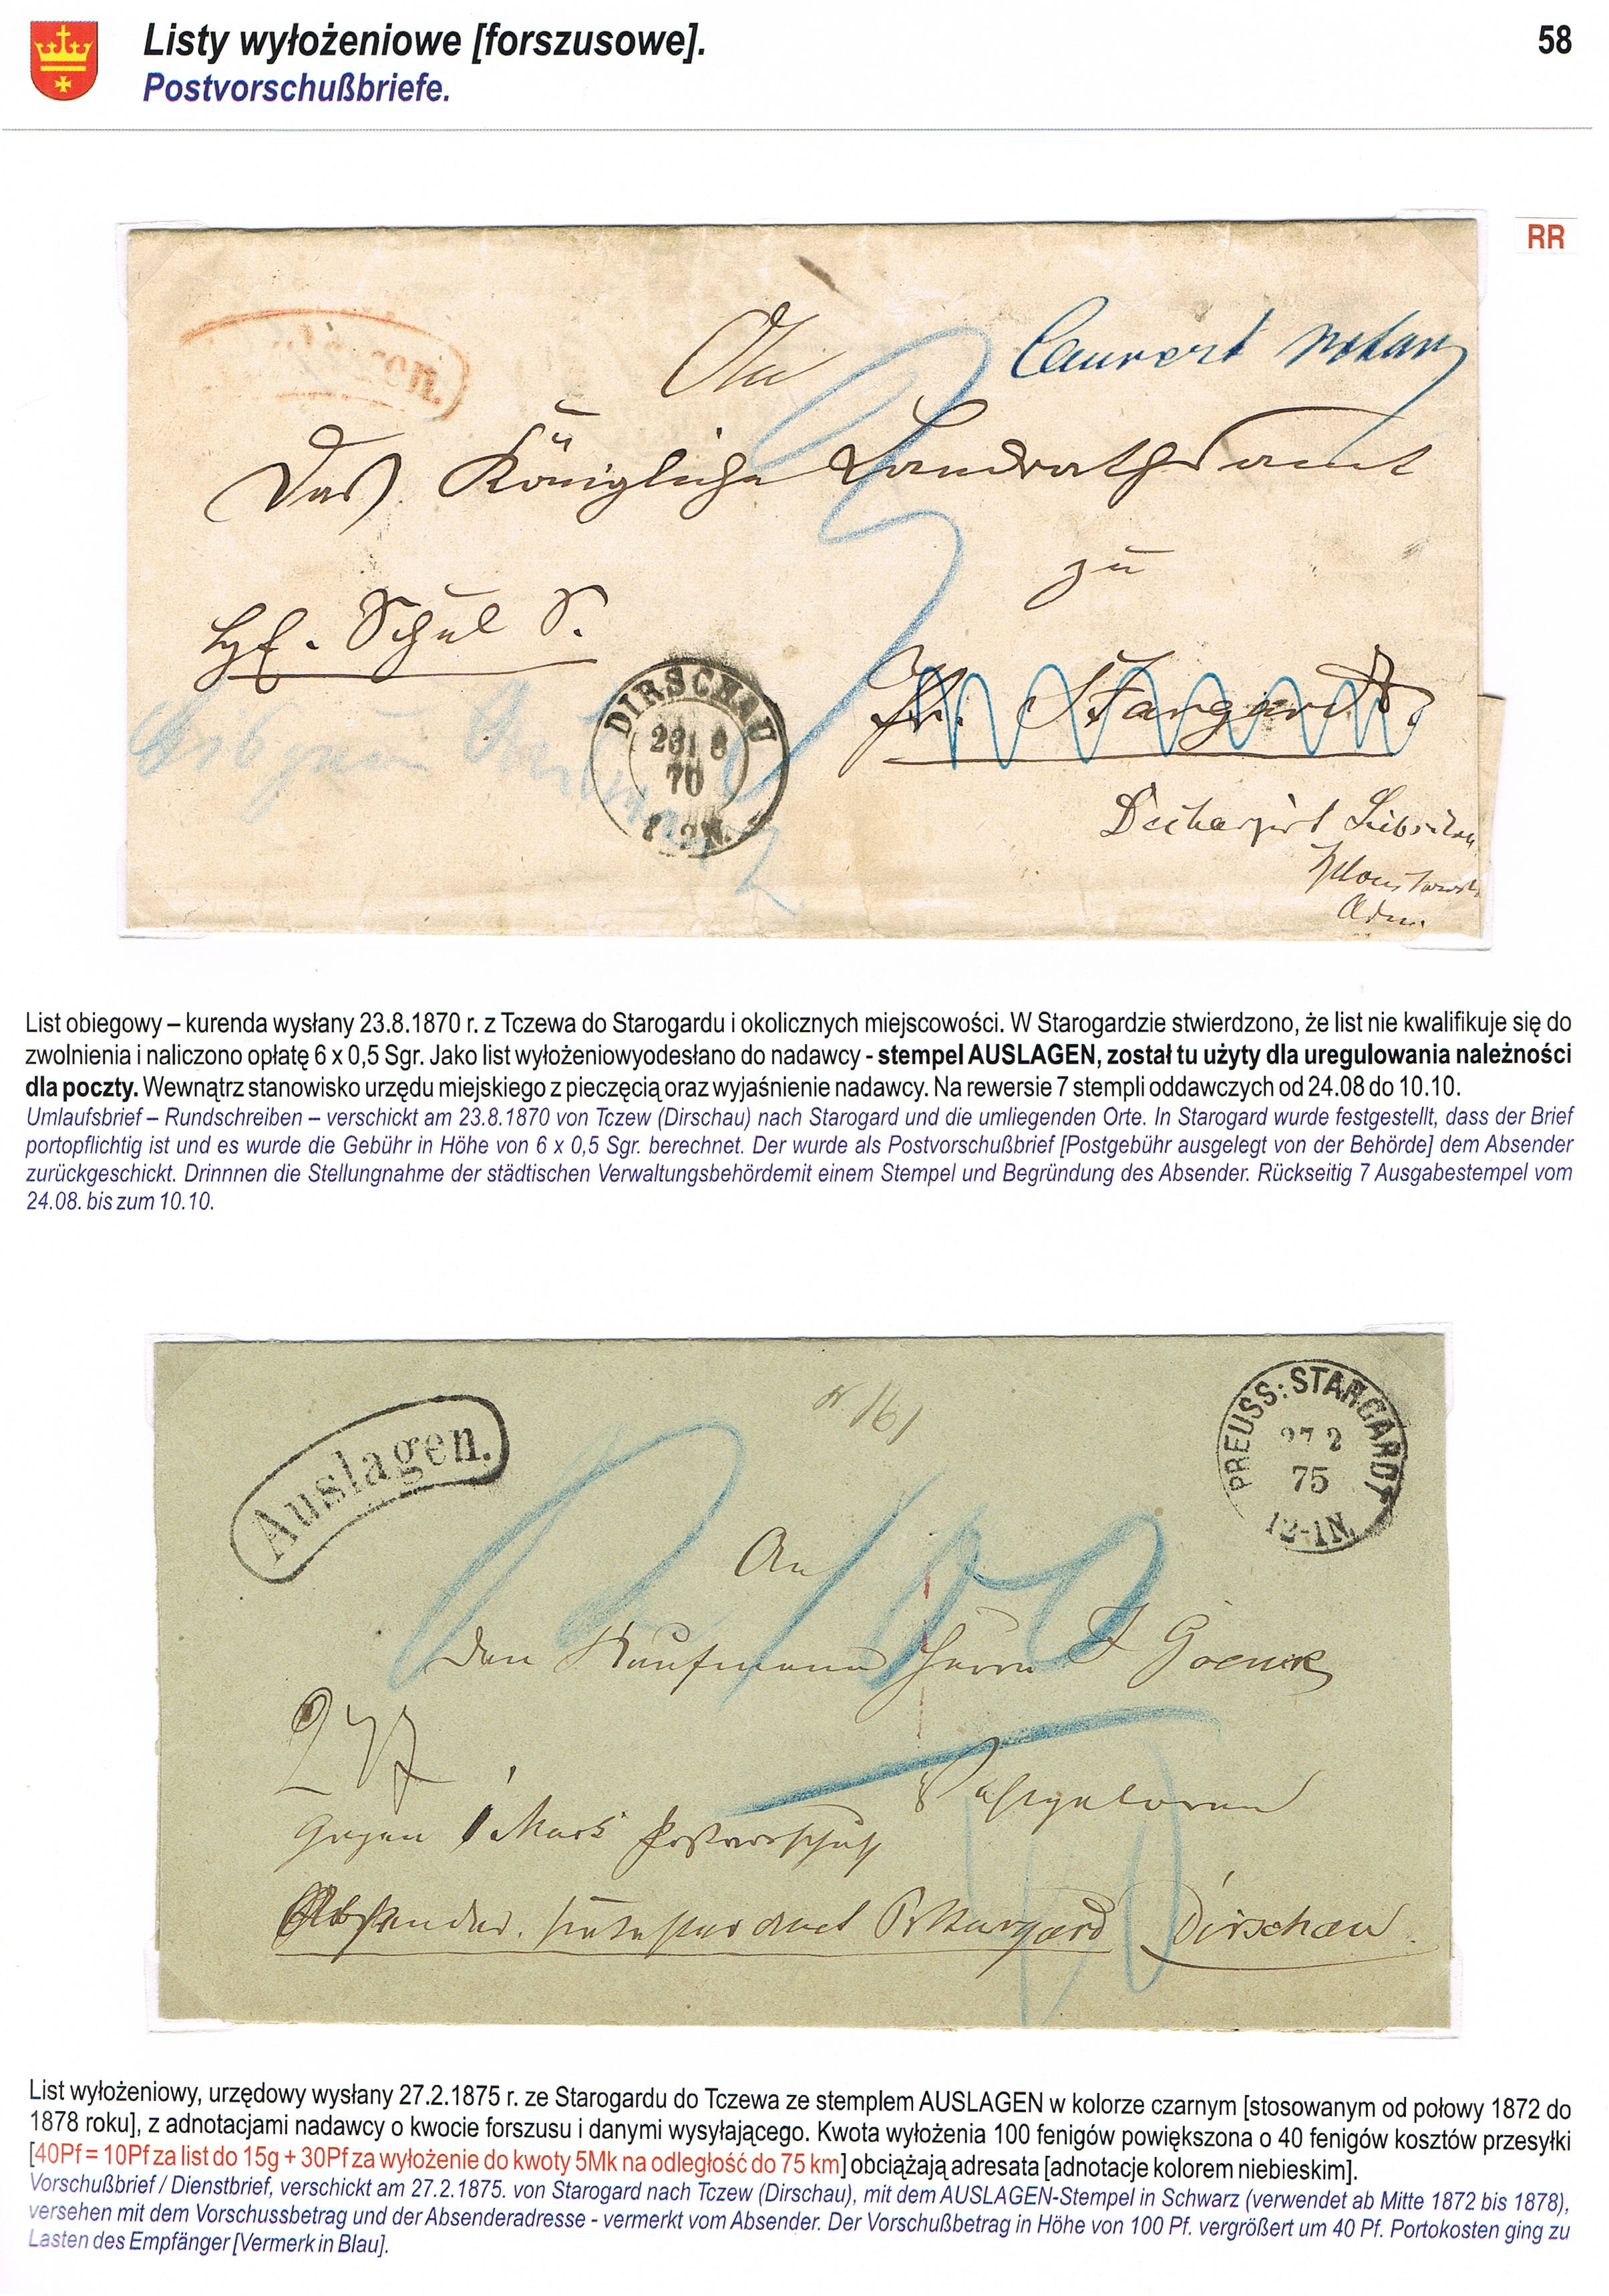 Listy wyłożeniowe [forszusowe].
58
Postvorschußbriefe.
RR
An
Couvert
Das Königliche Landrathsamt
zu
Schul S.
DIRSCHAU
23 8
70
Pr. Stargardt
List obiegowy – kurenda wysłany 23.8.1870 r. z Tczewa do Starogardu i okolicznych miejscowości. W Starogardzie stwierdzono, że list nie kwalifikuje się do
zwolnienia i naliczono opłatę 6 x 0,5 Sgr. Jako list wyłożeniowyodesłano do nadawcy - stempel AUSLAGEN, został tu użyty dla uregulowania należności
dla poczty. Wewnątrz stanowisko urzędu miejskiego z pieczęcią oraz wyjaśnienie nadawcy. Na rewersie 7 stempli oddawczych od 24.08 do 10.10.
Umlaufsbrief – Rundschreiben – verschickt am 23.8.1870 von Tczew (Dirschau) nach Starogard und die umliegenden Orte. In Starogard wurde festgestellt, dass der Brief
portopflichtig ist und es wurde die Gebühr in Höhe von 6 x 0,5 Sgr. berechnet. Der wurde als Postvorschußbrief [Postgebühr ausgelegt von der Behörde] dem Absender
zurückgeschickt. Drinnnen die Stellungnahme der städtischen Verwaltungsbehördemit einem Stempel und Begründung des Absender. Rückseitig 7 Ausgabestempel vom
24.08. bis zum 10.10.
Auslagen.
PREUSS: STARGARDT
27 2
75
12-1N.
An
den Kaufmann Herrn
gegen 1 Mark Postvorschuß
Absender. Pr Stargard Dirschau.
List wyłożeniowy, urzędowy wysłany 27.2.1875 r. ze Starogardu do Tczewa ze stemplem AUSLAGEN w kolorze czarnym [stosowanym od połowy 1872 do
1878 roku], z adnotacjami nadawcy o kwocie forszusu i danymi wysyłającego. Kwota wyłożenia 100 fenigów powiększona o 40 fenigów kosztów przesyłki
[40Pf = 10Pf za list do 15g + 30Pf za wyłożenie do kwoty 5Mk na odległość do 75 km] obciążają adresata [adnotacje kolorem niebieskim].
Vorschußbrief / Dienstbrief, verschickt am 27.2.1875. von Starogard nach Tczew (Dirschau), mit dem AUSLAGEN-Stempel in Schwarz (verwendet ab Mitte 1872 bis 1878),
versehen mit dem Vorschussbetrag und der Absenderadresse - vermerkt vom Absender. Der Vorschußbetrag in Höhe von 100 Pf. vergrößert um 40 Pf. Portokosten ging zu
Lasten des Empfänger [Vermerk in Blau].